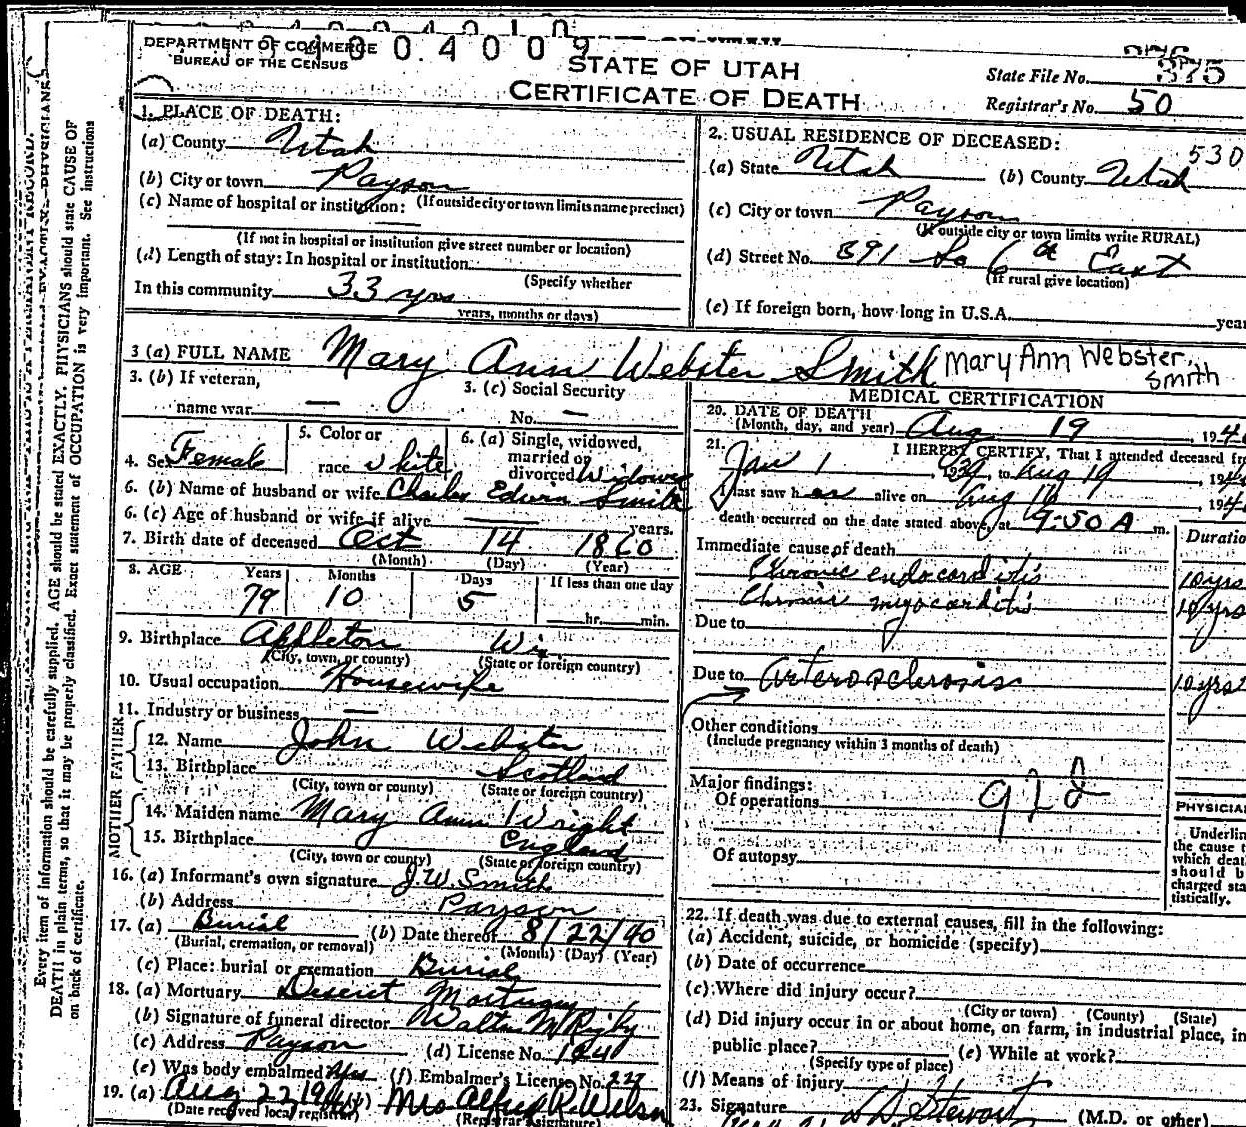 DEPARTMENT OF COMMERCE
BUREAU OF THE CENSUS
04009
STATE OF UTAH
CERTIFICATE OF DEATH
State File No. 375
Registrar's No. 50
1. PLACE OF DEATH:
(a) County Utah
(b) City or town Payson
(c) Name of hospital or institution: (If outside city or town limits name precinct)
—
(If not in hospital or institution give street number or location)
(d) Length of stay: In hospital or institution
(Specify whether
In this community 33 yrs
years, months or days)
2. USUAL RESIDENCE OF DECEASED:
530
(a) State Utah (b) County Utah
(c) City or town Payson
(If outside city or town limits write RURAL)
(d) Street No. 391 So 6th East
(If rural give location)
(e) If foreign born, how long in U.S.A. year
3 (a) FULL NAME Mary Ann Webster Smith Mary Ann Webster Smith
3. (b) If veteran,
name war —
3. (c) Social Security
No. —
4. Sex Female
5. Color or
race white
6. (a) Single, widowed,
married or
divorced Widowed
6. (b) Name of husband or wife Charles Edwin Smith
6. (c) Age of husband or wife if alive — years.
7. Birth date of deceased Oct 14 1860
(Month) (Day) (Year)
8. AGE Years Months Days If less than one day
79 10 5 hr. min.
9. Birthplace Appleton Wis
(City, town, or county) (State or foreign country)
10. Usual occupation Housewife
11. Industry or business —
FATHER
12. Name John Webster
13. Birthplace Scotland
(City, town or county) (State or foreign country)
MOTHER
14. Maiden name Mary Ann Wright
15. Birthplace England
(City, town or county) (State or foreign country)
16. (a) Informant's own signature J.W. Smith
(b) Address Payson
17. (a) Burial (b) Date thereof 8/22/40
(Burial, cremation, or removal) (Month) (Day) (Year)
(c) Place: burial or cremation Burial
18. (a) Mortuary Deseret Mortuary
(b) Signature of funeral director Walter M Rigby
(c) Address Payson (d) License No.
(e) Was body embalmed yes (f) Embalmer's License No. 227
19. (a) Aug 22 1940 (b) Mrs Alfred R. Wilson
(Date received local registrar) (Registrar's signature)
MEDICAL CERTIFICATION
20. DATE OF DEATH
(Month, day, and year) Aug 19, 194
21. I HEREBY CERTIFY, That I attended deceased fr
Jan 1 1939, to Aug 19, 194
I last saw her alive on Aug 16 194
death occurred on the date stated above, at 9:50 A m.
Duratio
Immediate cause of death
Chronic endocarditis 10 yrs
Chronic myocarditis 10 yrs
Due to
Due to Arterosclerosis 10 yrs
Other conditions
(Include pregnancy within 3 months of death)
Major findings:
Of operations
Of autopsy
PHYSICIA
Underlin
the cause t
which deat
should b
charged sta
tistically.
22. If death was due to external causes, fill in the following:
(a) Accident, suicide, or homicide (specify)
(b) Date of occurrence
(c) Where did injury occur?
(City or town) (County) (State)
(d) Did injury occur in or about home, on farm, in industrial place, in
public place? (e) While at work?
(Specify type of place)
(f) Means of injury
23. Signature L D Stewart (M.D. or other)
Every item of information should be carefully supplied. AGE should be stated EXACTLY. PHYSICIANS should state CAUSE OF
DEATH in plain terms, so that it may be properly classified. Exact statement of OCCUPATION is very important. See instructions
on back of certificate.